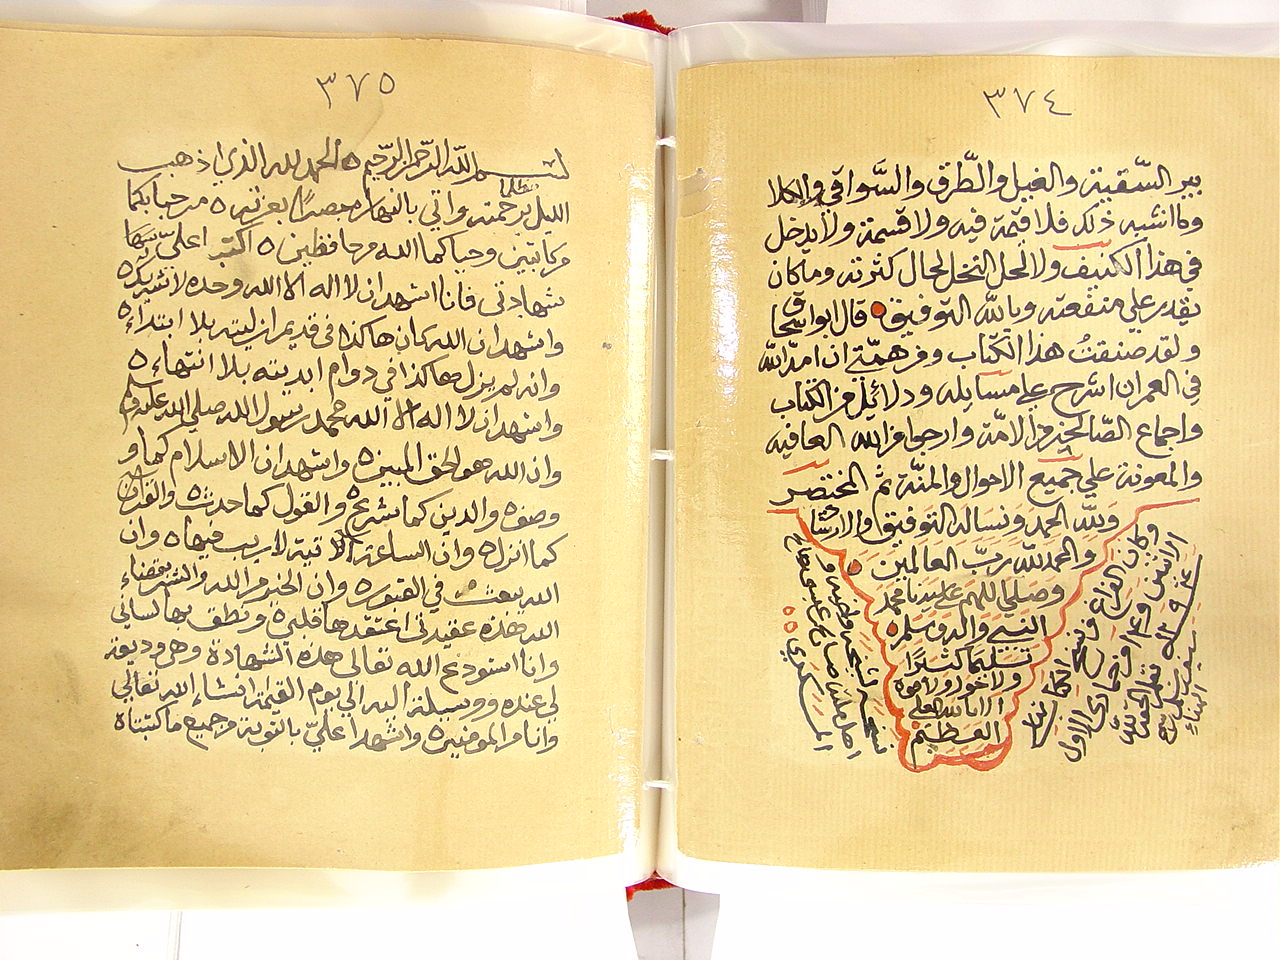 ٣٧٤
بير السقية والغيل والطرق والسواقي والكلا
وما اشبه ذلك فلا قيمة فيه ولا قسمة ولا يدخل
في هذا الكنيف ولا لحل النخل لحال كثرته وما كان
يقدر علي منفعته وبالله التوفيق قال ابو اسحاق
ولقد صنفت هذا الكتاب وفي همتي ان امد الله
في العمر ان اشرح علي مسايله ودلائل من الكتاب
واجماع الصالحين من الامة وارجوا من الله العافيه
والمعونة علي جميع الاحوال والمنة تم المختصر
ولله الحمد ونساله التوفيق والارشاد
والحمد لله رب العالمين
وصلي اللهم علي سيدنا محمد
النبي واله وسلم
تسليما كثيرا
ولا حول ولا قوة
الا بالله العلي
العظيم
وكان الفراغ من نسخ
٣٧٥
بسم الله الرحمن الرحيم ه الحمد لله الذي اذهب
الليل مظلما برحمته واتي بالنهار مبصرا بعزته ه مرحبا بكما
من كاتبين وحياكما الله من حافظين ه اكتب
شهادتي فانا اشهد ان لا اله الا الله وحده لا شريك له
واشهد ان الله كان هاكذا في قديم ازليته بلا ابتداء ه
وانه لم يزل هاكذا في دوام ابديته بلا انتهاء ه
واشهد ان لا اله الا الله محمد رسول الله صلى الله عليه وسلم
وان الله هو الحق المبين ه واشهد ان الاسلام كما
وصف ه والدين كما شرع ه والقول كما حدث ه والقران
كما انزل ه وان الساعة اتية لا ريب فيها ه وان
الله يبعث من في القبور ه وان الخير من الله والشر بقضاء
الله فهذه عقيدتي اعتقدها قلبي ه ونطق بها لساني
وانا استودع الله تعالى هذه الشهادة وهي وديعة
لي عنده ووسيلة اليه الي يوم القيمة انشاء الله تعالى
وانا من المومنين ه واشهدا علي بالتوبة من جميع ما كتبتاه